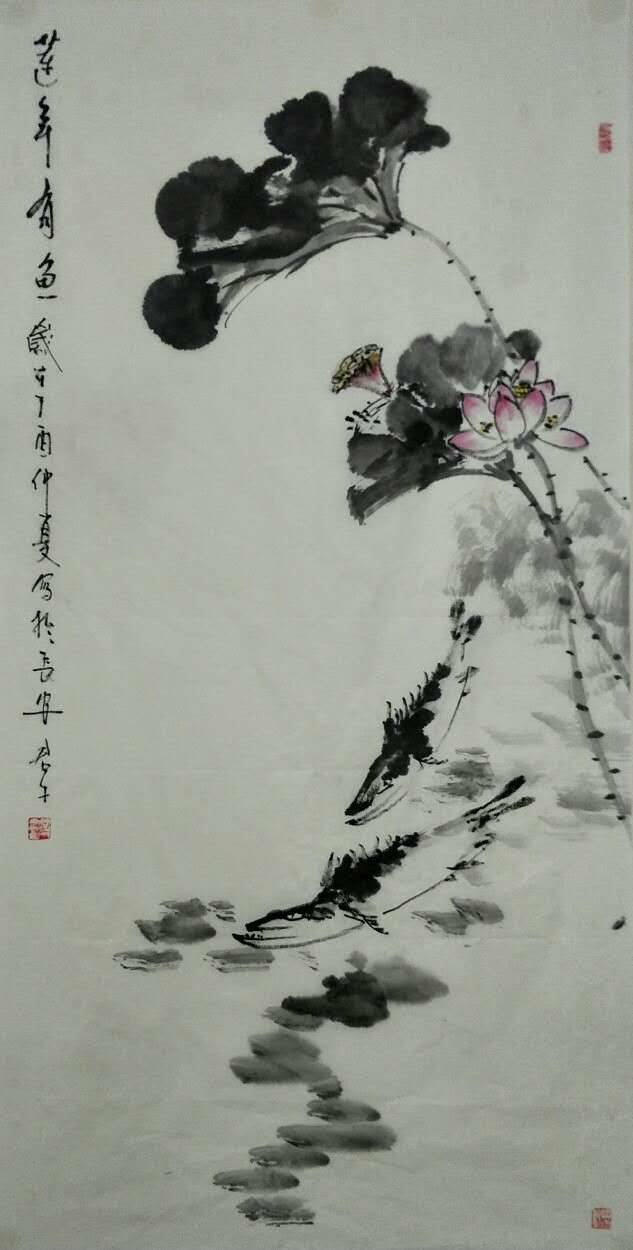 莲年有鱼岁在丁酉仲夏写于长安